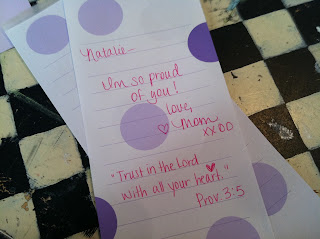 Natalie—
I'm so proud
of you!
love,
♡ Mom
XXOO
"Trust in the Lord ♥
with all your heart."
Prov 3:5